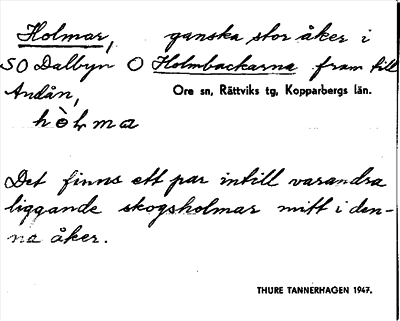 Holmar, ganska stor åker i
SO Dalbyn O Holmbackarna fram till
Andån, Ore sn, Rättviks tg, Kopparbergs län.
hòlma
Det finns ett par intill varandra
liggande skogsholmar mitt i den-
na åker.
THURE TANNERHAGEN 1947.